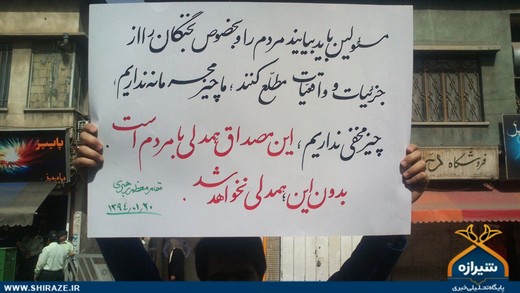 مسئولین باید بیایند مردم را و بخصوص نخبگان را از
جزئیات و واقعیّات مطلع کنند؛ ما چیز محرمانه نداریم،
چیز مخفی نداریم، این مصداق همدلی با مردم است.
بدون این، همدلی نخواهد شد.
مقام معظم رهبری
۱۳۹۴،۰۱،۲۰
پاییز
پاییز
فروشگاه
شیرازه
پایگاه تحلیلی خبری
WWW.SHIRAZE.IR
WWW.SHIRAZE.IR